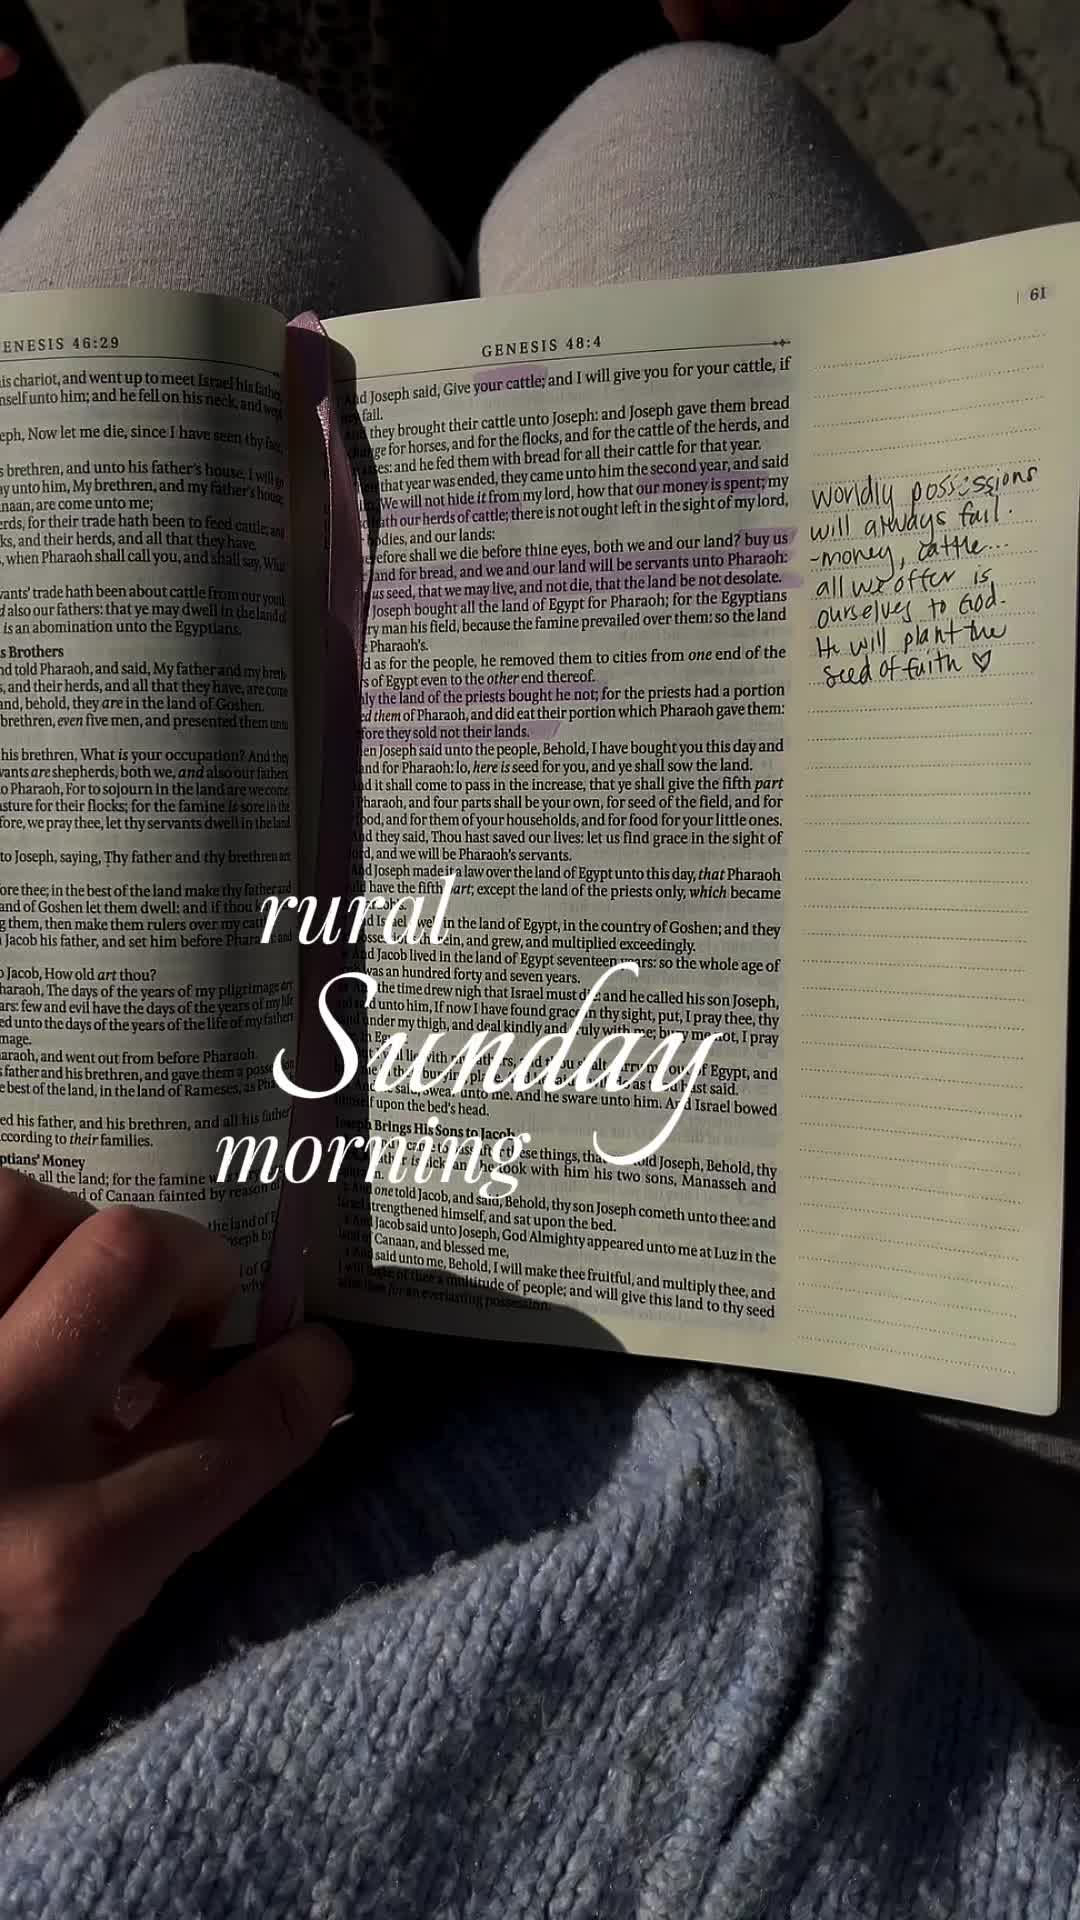 ENESIS 46:29
is chariot, and went up to meet Israel his fathe
nself unto him; and he fell on his neck, and wep
eph, Now let me die, since I have seen thy fac
s brethren, and unto his father's house, I will g
y unto him, My brethren, and my father's house
naan, are come unto me;
erds, for their trade hath been to feed cattle; and
ks, and their herds, and all that they have.
, when Pharaoh shall call you, and shall say, What
vants' trade hath been about cattle from our yout
d also our fathers: that ye may dwell in the land of
is an abomination unto the Egyptians.
s Brothers
nd told Pharaoh, and said, My father and my breth
s, and their herds, and all that they have, are come
and, behold, they are in the land of Goshen.
brethren, even five men, and presented them unto
his brethren, What is your occupation? And they
vants are shepherds, both we, and also our fathers
o Pharaoh, For to sojourn in the land are we come
sture for their flocks; for the famine is sore in the
fore, we pray thee, let thy servants dwell in the land
to Joseph, saying, Thy father and thy brethren are
ore thee; in the best of the land make thy father and
and of Goshen let them dwell: and if thou
g them, then make them rulers over my catt
Jacob his father, and set him before Phara and
o Jacob, How old art thou?
haraoh, The days of the years of my pilgrimage are
ars: few and evil have the days of the years of my life
ed unto the days of the years of the life of my fathers
mage.
araoh, and went out from before Pharaoh.
s father and his brethren, and gave them a possession
e best of the land, in the land of Rameses, as Pha
ed his father, and his brethren, and all his father
ccording to their families.
ptians' Money
in all the land; for the famine w
nd of Canaan fainted by reason of
the land of E
oseph br
l of
why
GENESIS 48:4
| 61
And Joseph said, Give your cattle; and I will give you for your cattle, if
fail.
they brought their cattle unto Joseph: and Joseph gave them bread
nge for horses, and for the flocks, and for the cattle of the herds, and
ses: and he fed them with bread for all their cattle for that year.
that year was ended, they came unto him the second year, and said
We will not hide it from my lord, how that our money is spent; my
ath our herds of cattle; there is not ought left in the sight of my lord,
bodies, and our lands:
efore shall we die before thine eyes, both we and our land? buy us
land for bread, and we and our land will be servants unto Pharaoh:
us seed, that we may live, and not die, that the land be not desolate.
Joseph bought all the land of Egypt for Pharaoh; for the Egyptians
ry man his field, because the famine prevailed over them: so the land
e Pharaoh's.
d as for the people, he removed them to cities from one end of the
s of Egypt even to the other end thereof.
ly the land of the priests bought he not; for the priests had a portion
ed them of Pharaoh, and did eat their portion which Pharaoh gave them:
fore they sold not their lands.
en Joseph said unto the people, Behold, I have bought you this day and
and for Pharaoh: lo, here is seed for you, and ye shall sow the land.
d it shall come to pass in the increase, that ye shall give the fifth part
Pharaoh, and four parts shall be your own, for seed of the field, and for
food, and for them of your households, and for food for your little ones.
And they said, Thou hast saved our lives: let us find grace in the sight of
ord, and we will be Pharaoh's servants.
And Joseph made it a law over the land of Egypt unto this day, that Pharaoh
have the fifth part; except the land of the priests only, which became
in the land of Egypt, in the country of Goshen; and they
and grew, and multiplied exceedingly.
And Jacob lived in the land of Egypt seventeen years: so the whole age of
was an hundred forty and seven years.
the time drew nigh that Israel must die: and he called his son Joseph,
said unto him, If now I have found grace in thy sight, put, I pray thee, thy
under my thigh, and deal kindly and truly with me; bury me not, I pray
of Egypt, and
hast said.
unto me. And he sware unto him. And Israel bowed
himself upon the bed's head.
Joseph Brings His Sons to Jacob
these things, that told Joseph, Behold, thy
he took with him his two sons, Manasseh and
And one told Jacob, and said, Behold, thy son Joseph cometh unto thee: and
Israel strengthened himself, and sat upon the bed.
And Jacob said unto Joseph, God Almighty appeared unto me at Luz in the
land of Canaan, and blessed me,
said unto me, Behold, I will make thee fruitful, and multiply thee, and
I will make of thee a multitude of people; and will give this land to thy seed
after thee for an everlasting possession.
worldly possessions
will always fail.
-money, cattle...
all we offer is
ourselves to God.
He will plant the
seed of faith ♡
rural
Sunday
morning